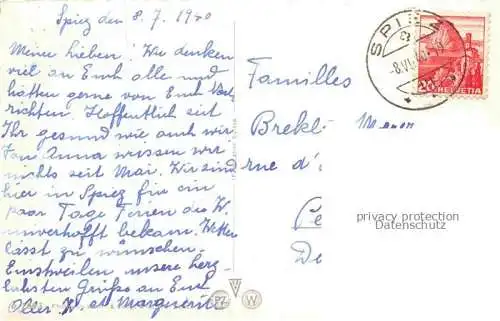 Spiez den 8. 7. 1940
Meine Lieben! Wir denken
viel an Euch alle und
hätten gerne von Euch Nach-
richten. Hoffentlich seit
Ihr gesund wie auch wir
Von Anna wissen wir
nichts seit Mai. Wir sind
hier in Spiez für ein
paar Tage Ferien die W.
unverhofft bekam. Wetter
lässt zu wünschen.
Einstweilen unsere herz-
lichsten Grüße an Euch
Alle W. et Marguerite
Familles
Brekl Menon
rue d'
Ce
De
SPIEZ
20
HELVETIA
privacy protection
Datenschutz
W